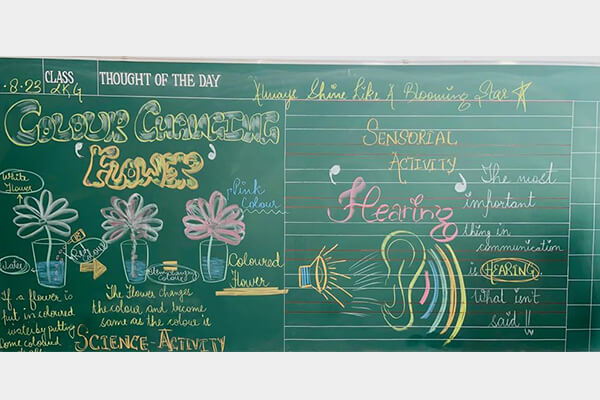 .8.23
CLASS
LKG
THOUGHT OF THE DAY
Always Shine Like A Blooming Star
COLOUR CHANGING
"FLOWER"
White
Flower
Water
Red
Colour
Pink
Colour
Coloured
Flower
If a flower is
put in coloured
water by putting
some coloured
The Flower changes
the colour and become
same as the colour is
SCIENCE-ACTIVITY
SENSORIAL
ACTIVITY
Hearing
The most
important
thing in
communication
is HEARING
What isn't
said !!